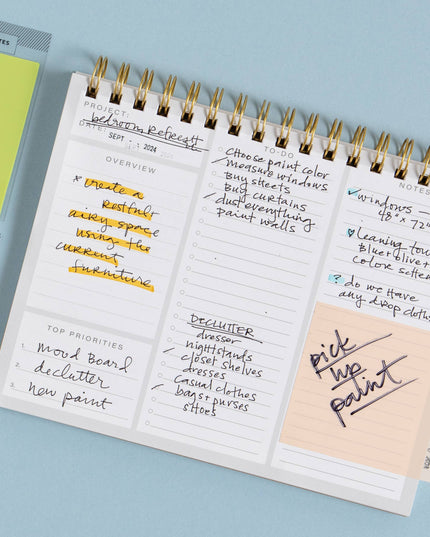 TES
PROJECT:
bedroom Refresh
DATE:
SEPT 2024
OVERVIEW
* create a
restful +
airy space
using the
current
furniture
TOP PRIORITIES
1. mood board
2. declutter
3. new paint
TO-DO
Choose paint color
measure windows
Buy sheets
Buy curtains
dust everything
paint walls
DECLUTTER
dresser
nightstands
closet shelves
dresses
Casual clothes
bags + purses
shoes
NOTES
windows -
48" x 72"
leaning tow
Blue + olive +
color sette
? do we have
any drop cloths
pick
up
paint